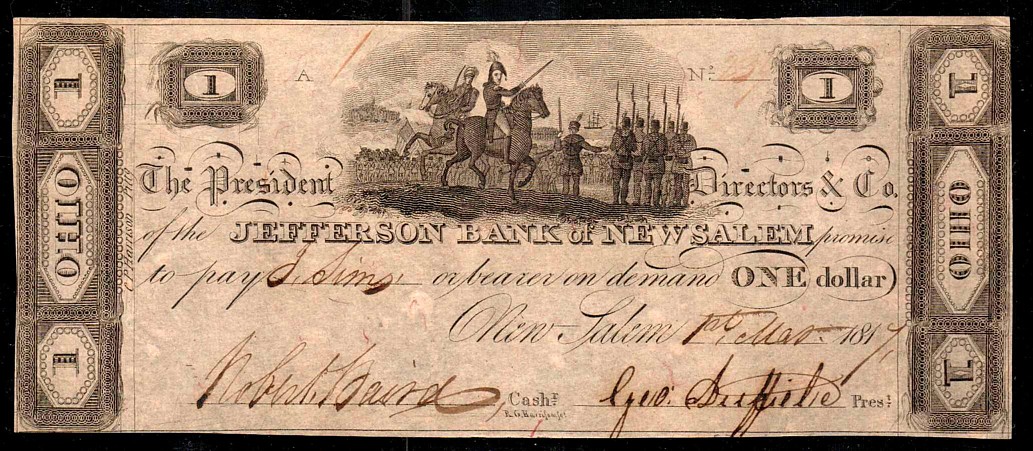 1 A Nº 1
The President Directors & Co.
of the JEFFERSON BANK of NEW SALEM promise
to pay J. Sims or bearer on demand ONE dollar
New Salem 1st Mar. 1817
Robert Baird Cashr. Geo: Duffield Prest.
R.G. Harrison Sct.
1
OHIO
1
1
OHIO
1